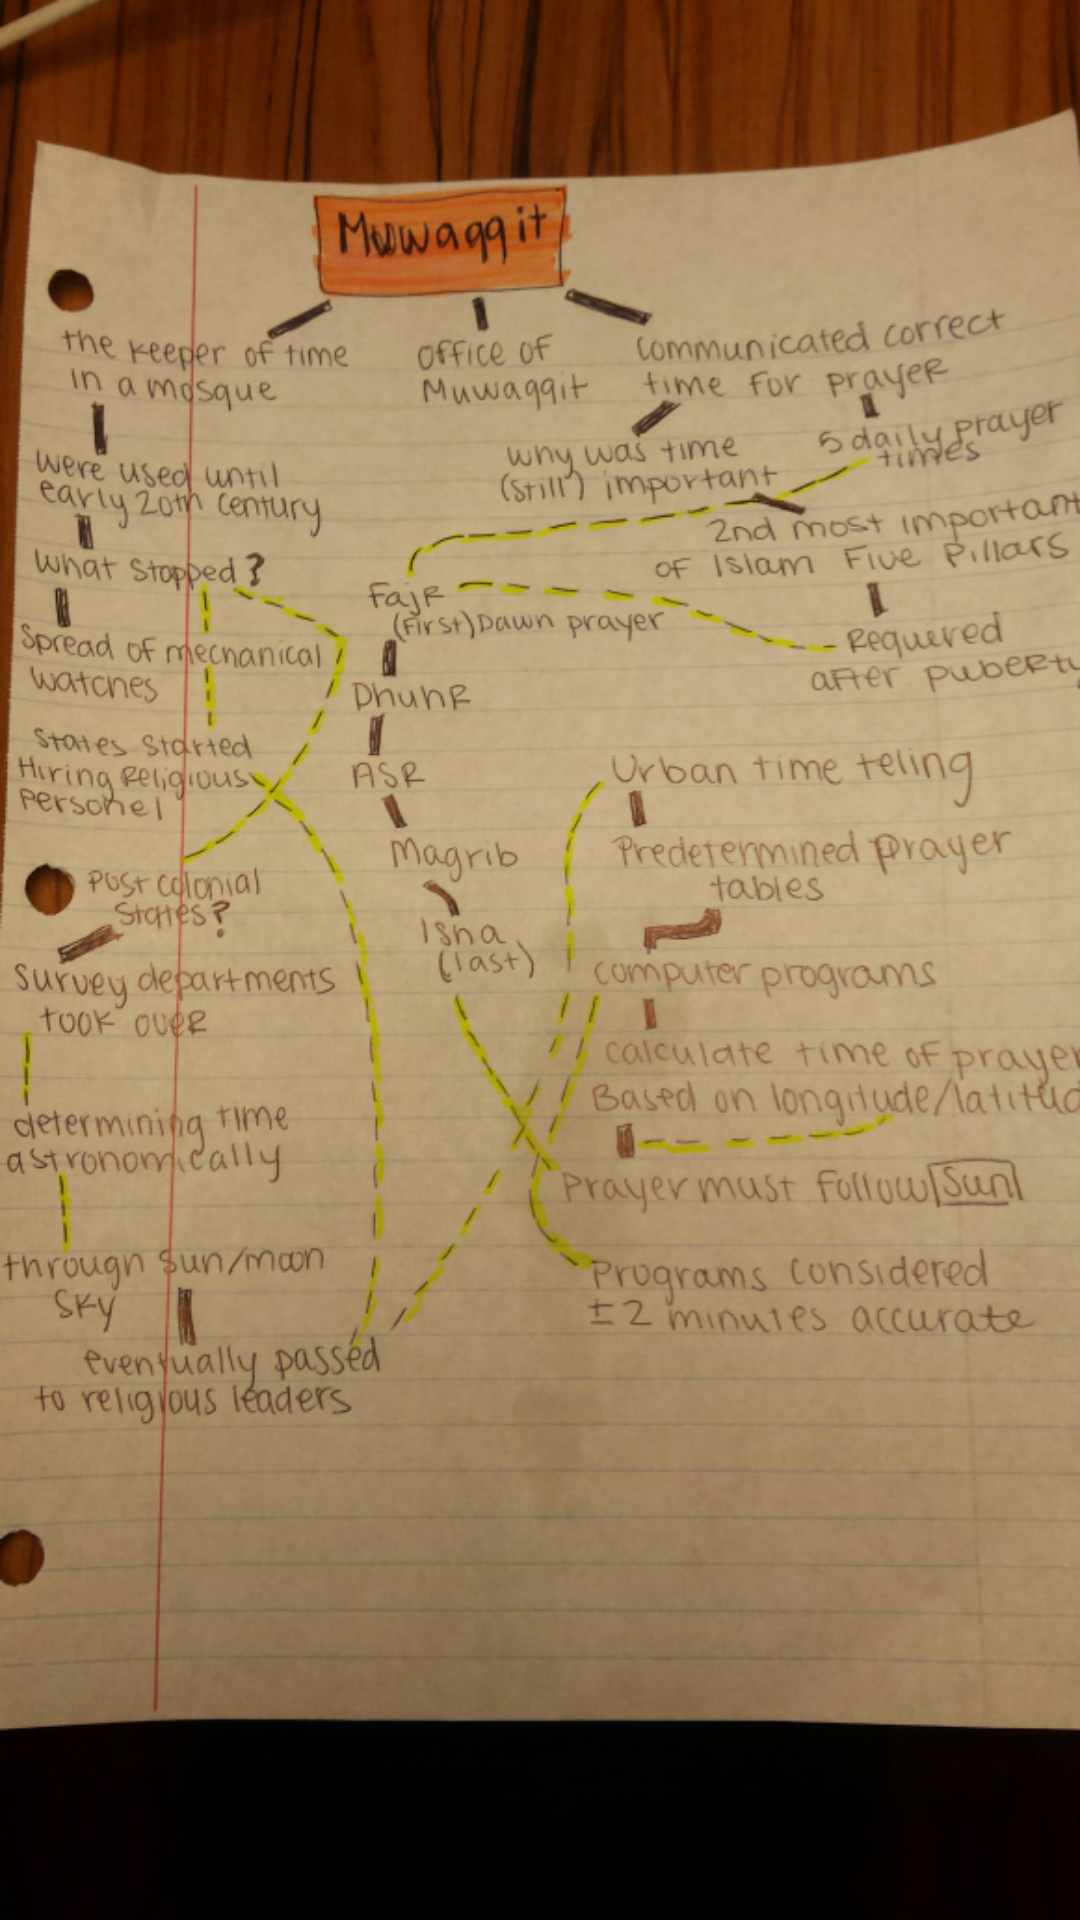 Muwaqqit
the keeper of time
in a mosque
were used until
early 20th century
What stopped?
Spread of mechanical
watches
States started
Hiring Religious
Personel
Post colonial
States?
Survey departments
took over
determining time
astronomically
through sun/moon
sky
eventually passed
to religious leaders
office of
Muwaqqit
Communicated correct
time for prayer
why was time
(still) important
5 daily prayer
times
2nd most important
of Islam Five Pillars
Required
after puberty
Fajr
(first) Dawn prayer
Dhuhr
ASR
Magrib
Isha
(last)
Urban time teling
Predetermined prayer
tables
computer programs
calculate time of prayer
Based on longitude/latitud
Prayer must follow Sun
Programs considered
±2 minutes accurate